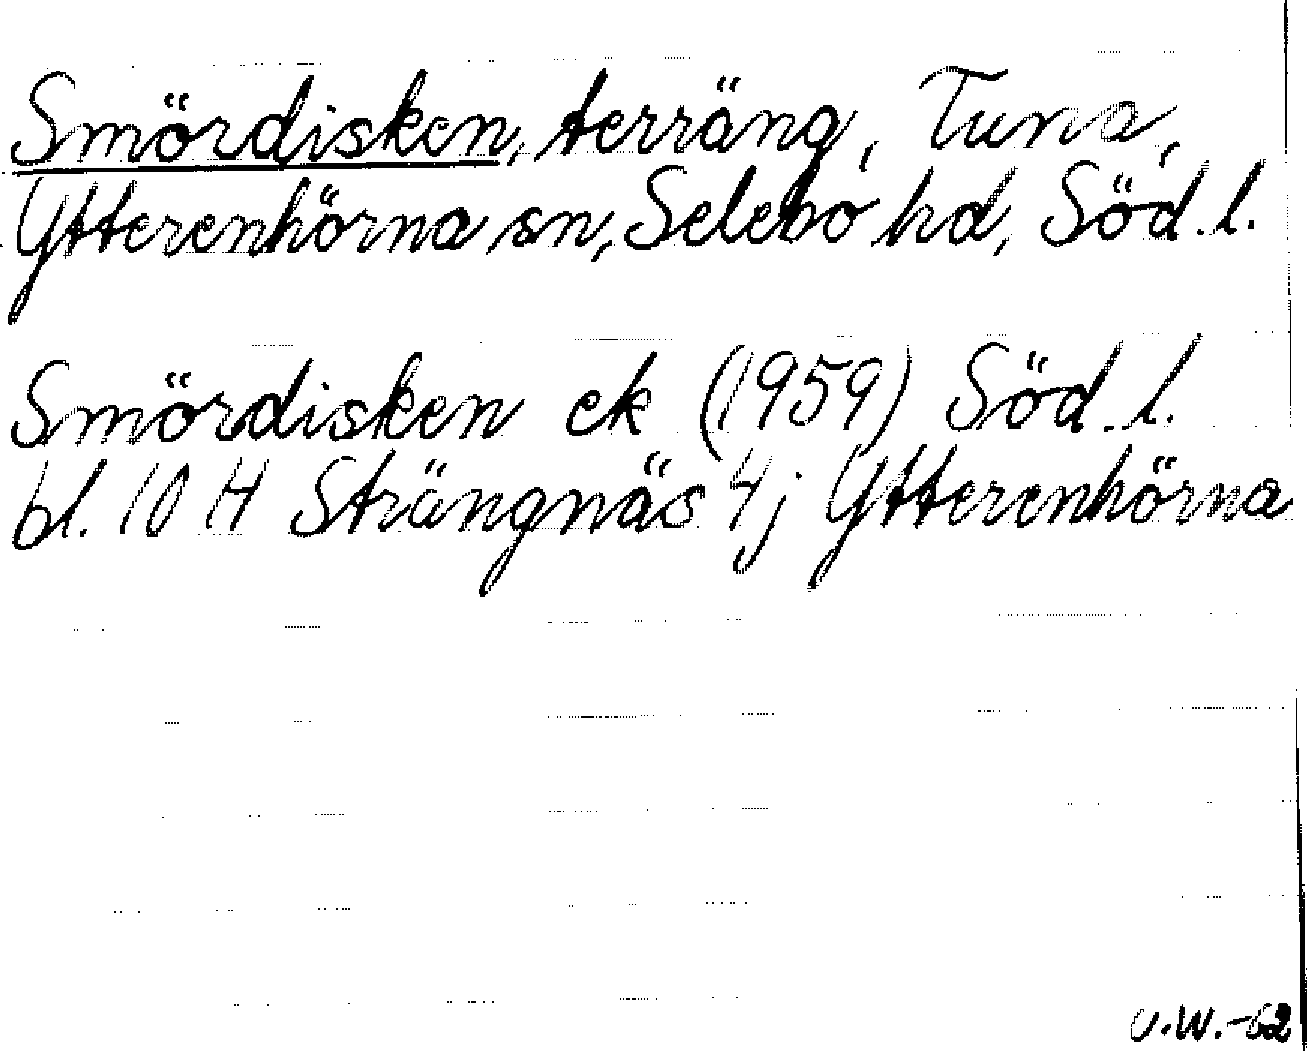 Smördisken, terräng, Tuna,
Ytterenhörna sn, Selebo hd, Söd. l.
Smördisken ek (1959) Söd. l.
bl. 10 H Strängnäs 4j Ytterenhörna
U.W.-62